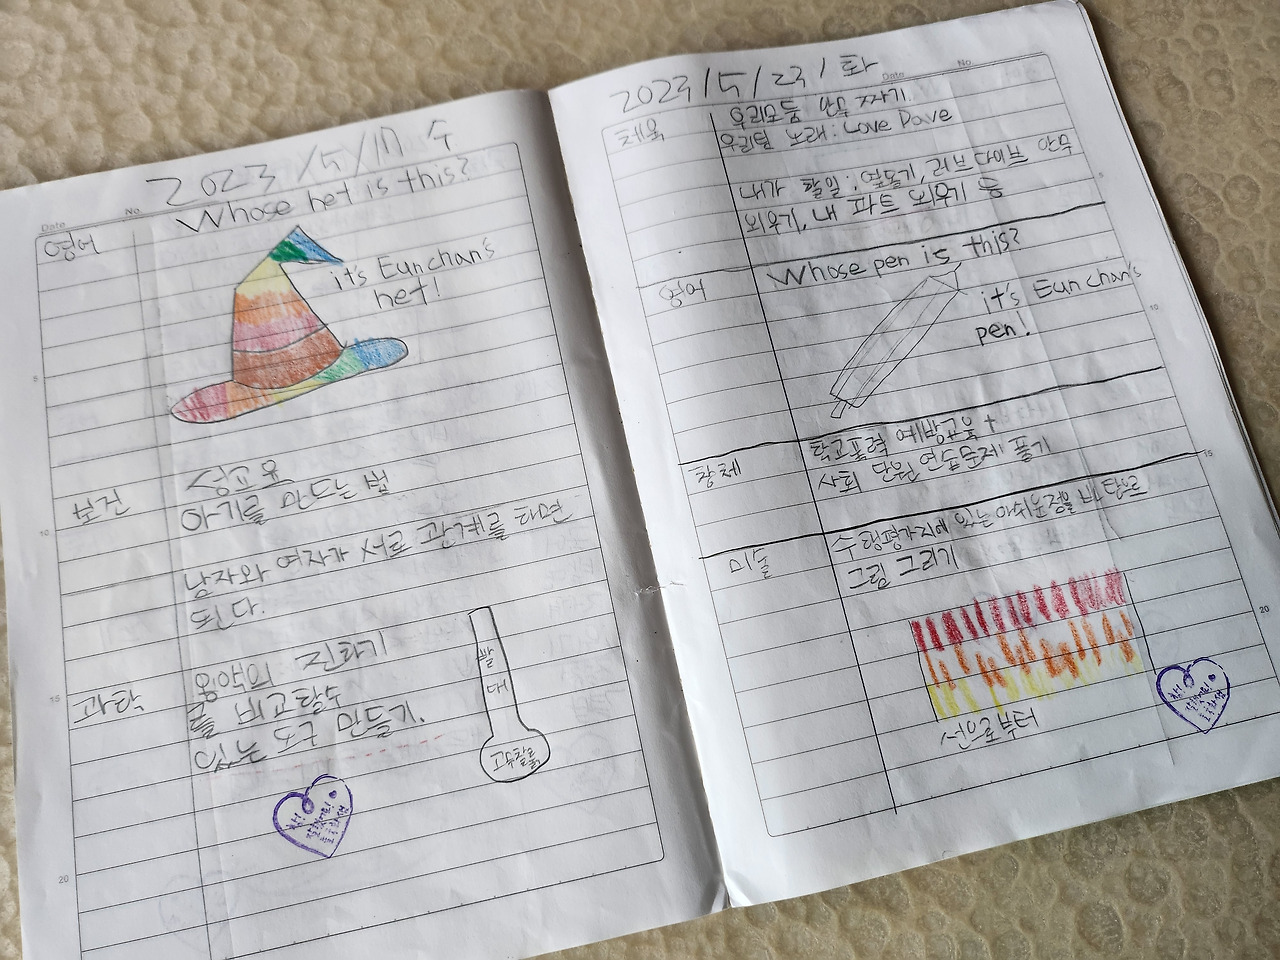 2023/5/17 수
Date No.
영어
Whose het is this?
it's Eunchan's
het!
보건
성교육
아기를 만드는 법
남자와 여자가 서로 관계를 하면
된다.
과탐
용액의 진하기
를 비교할 수
있는 도구 만들기.
빨
대
고무찰흙
5
10
15
20
2023/5/23/화
Date No.
체육
우리모둠 안무 짜기.
우리팀 노래: Love Dave
내가 할일: 옆돌기, 러브다이브 안무
외우기, 내 파트 외우기 등
영어
Whose pen is this?
it's Eunchan's
pen!
창체
학교폭력 예방교육 +
사회 단원 연습문제 풀기
미술
수행평가지에 있는 아쉬운점을
그림 그리기
선으로부터
5
10
15
20